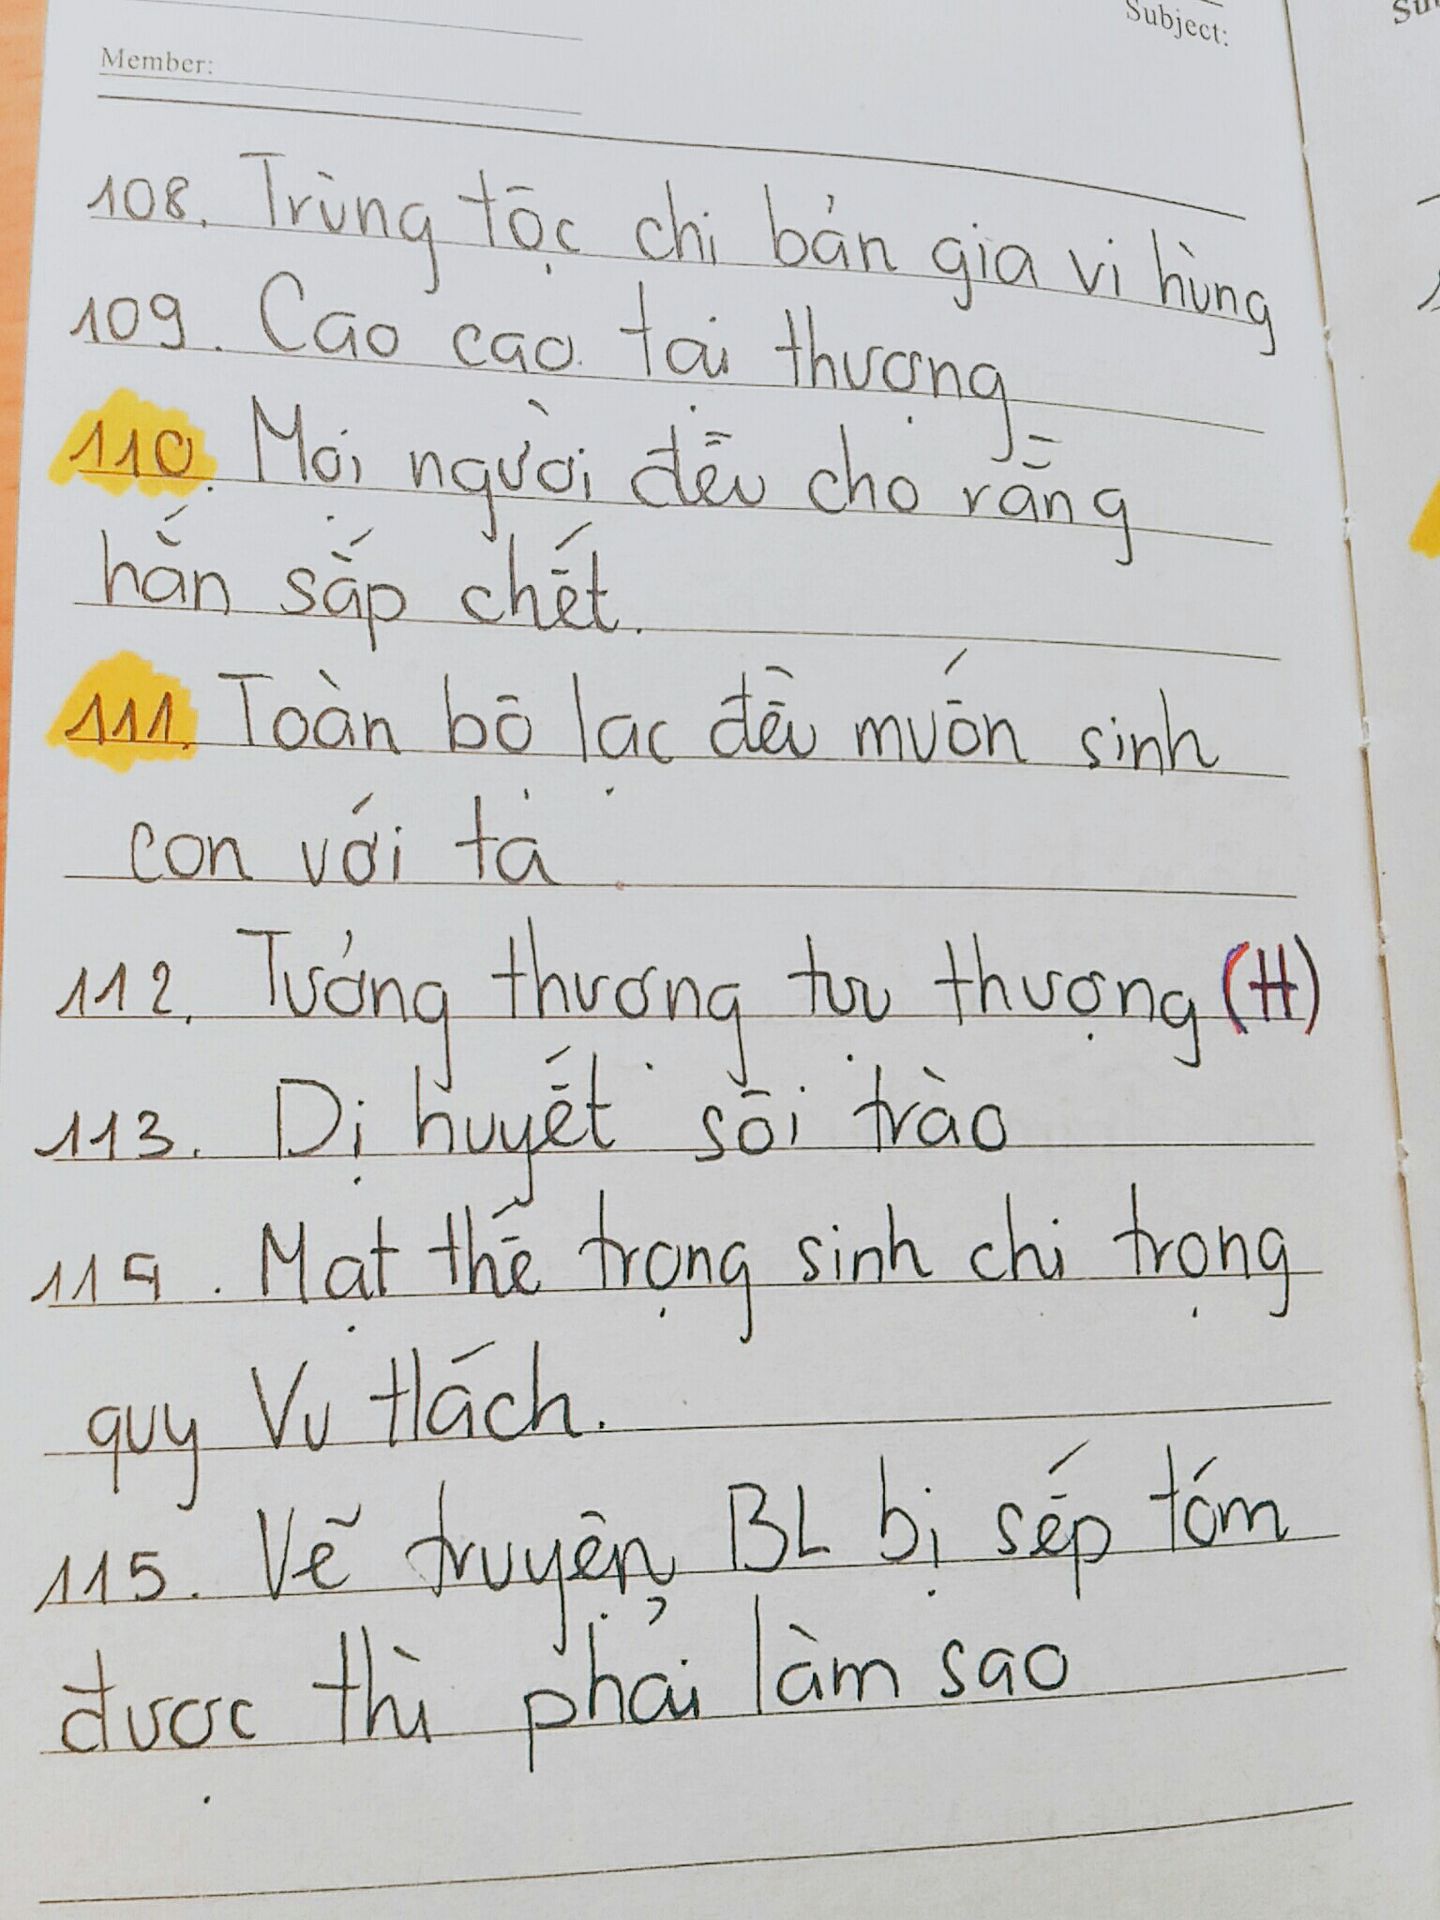 Subject:
Member:
108. Trùng tộc chi bán gia vi hùng
109. Cao cao tại thượng
110. Mọi người đều cho rằng
hắn sắp chết.
111. Toàn bô lạc đều muốn sinh
con với ta
112. Tướng thượng tựu thượng (H)
113. Dị huyết sôi trào
114. Mạt thế trọng sinh chi trọng
quy Vu Hách.
115. Vẽ truyện BL bị sếp tóm
được thì phải làm sao